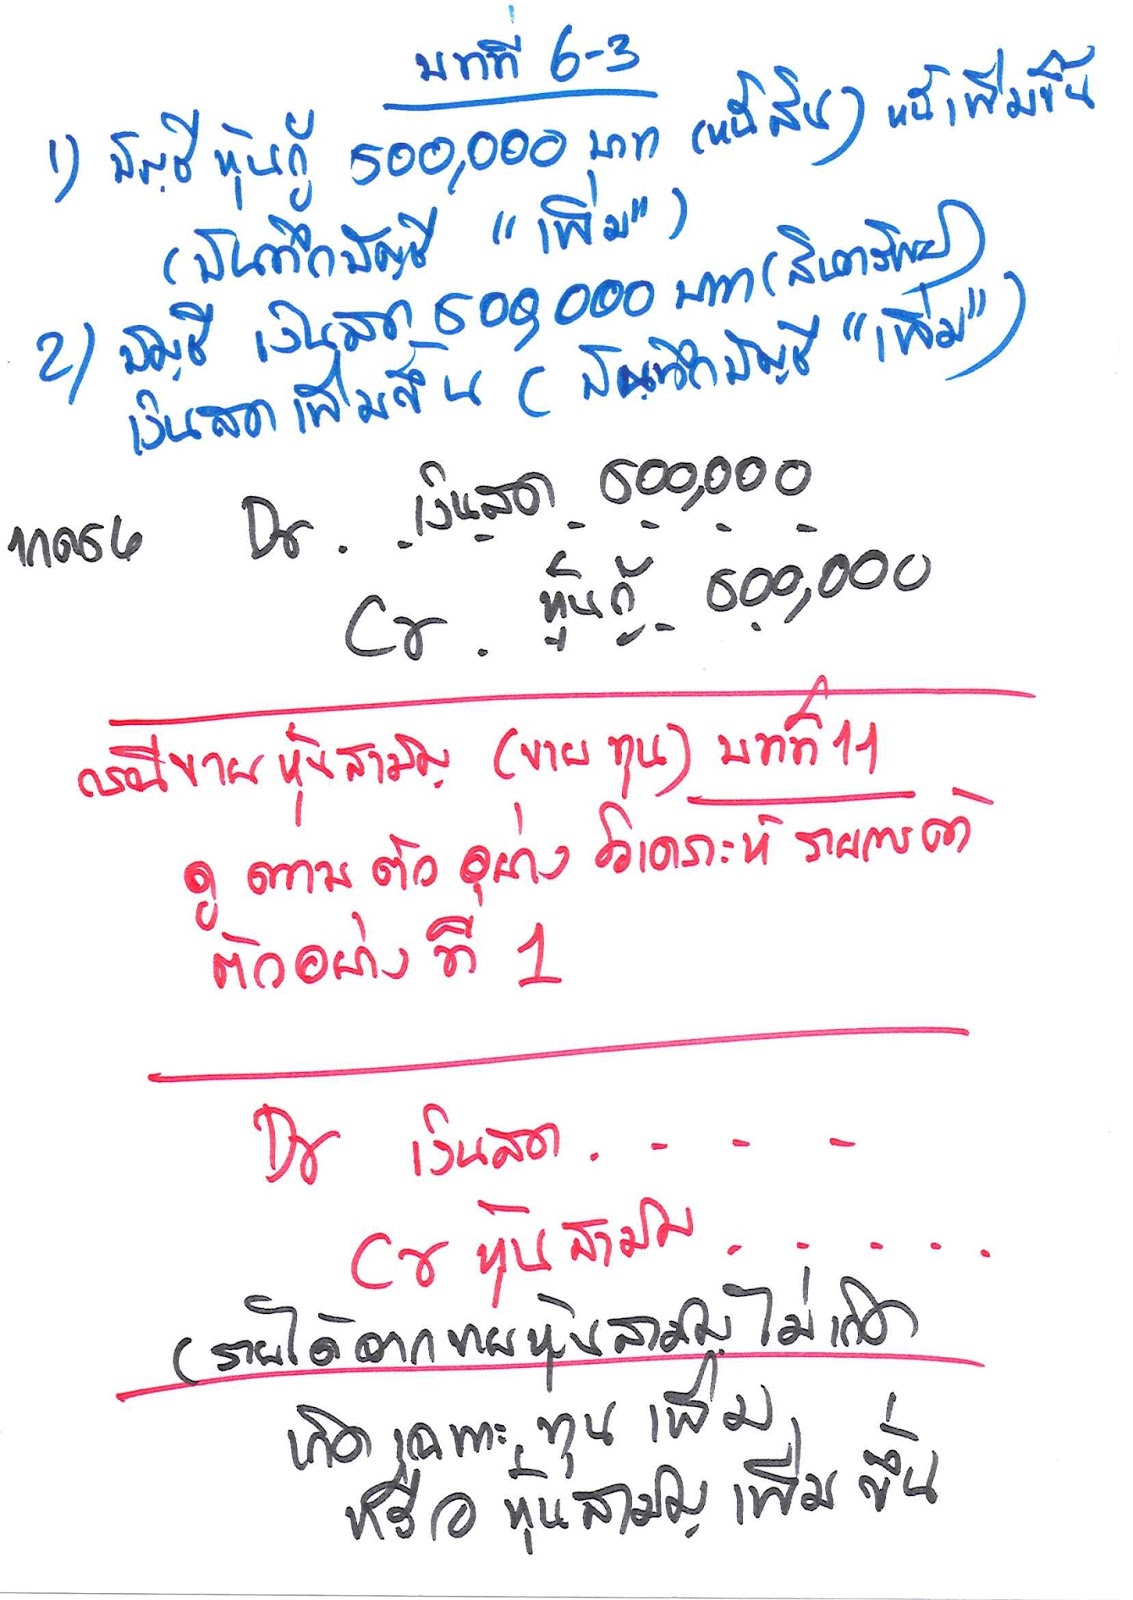 บทที่ 6-3
1) บัญชี หุ้นกู้ 500,000 บาท (หนี้สิน) หนี้เพิ่มขึ้น
(บันทึกบัญชี "เพิ่ม")
2) บัญชี เงินสด 500,000 บาท (สินทรัพย์)
เงินสดเพิ่มขึ้น (บันทึกบัญชี "เพิ่ม")
Dr. เงินสด 500,000
Cr. หุ้นกู้ 500,000
กรณีขายหุ้นสามัญ (ขายทุน) บทที่ 11
ดูตามตัวอย่างวิเคราะห์รายการค้า
ตัวอย่างที่ 1
Dr เงินสด . - - -
Cr หุ้นสามัญ . . . . .
(รายได้จากขายหุ้นสามัญไม่เกิด
เกิดเฉพาะทุนเพิ่ม
หรือหุ้นสามัญเพิ่มขึ้น